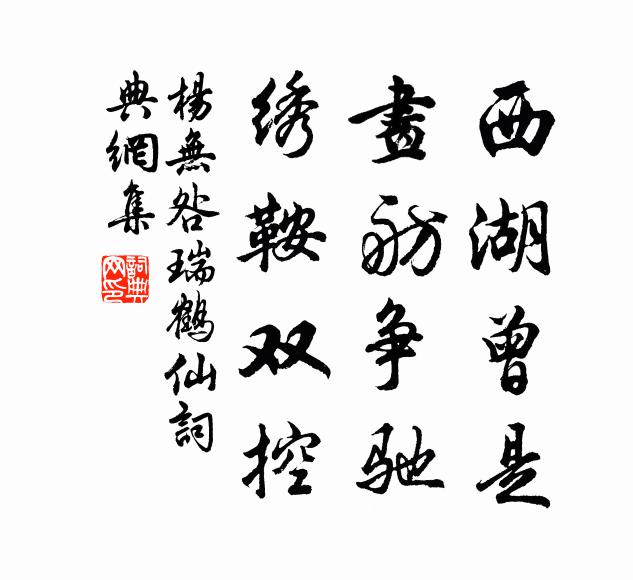 西湖曾是
畫舫争驰
绣鞍双控
楊無咎瑞鶴仙詞
典網集
詞典
网印